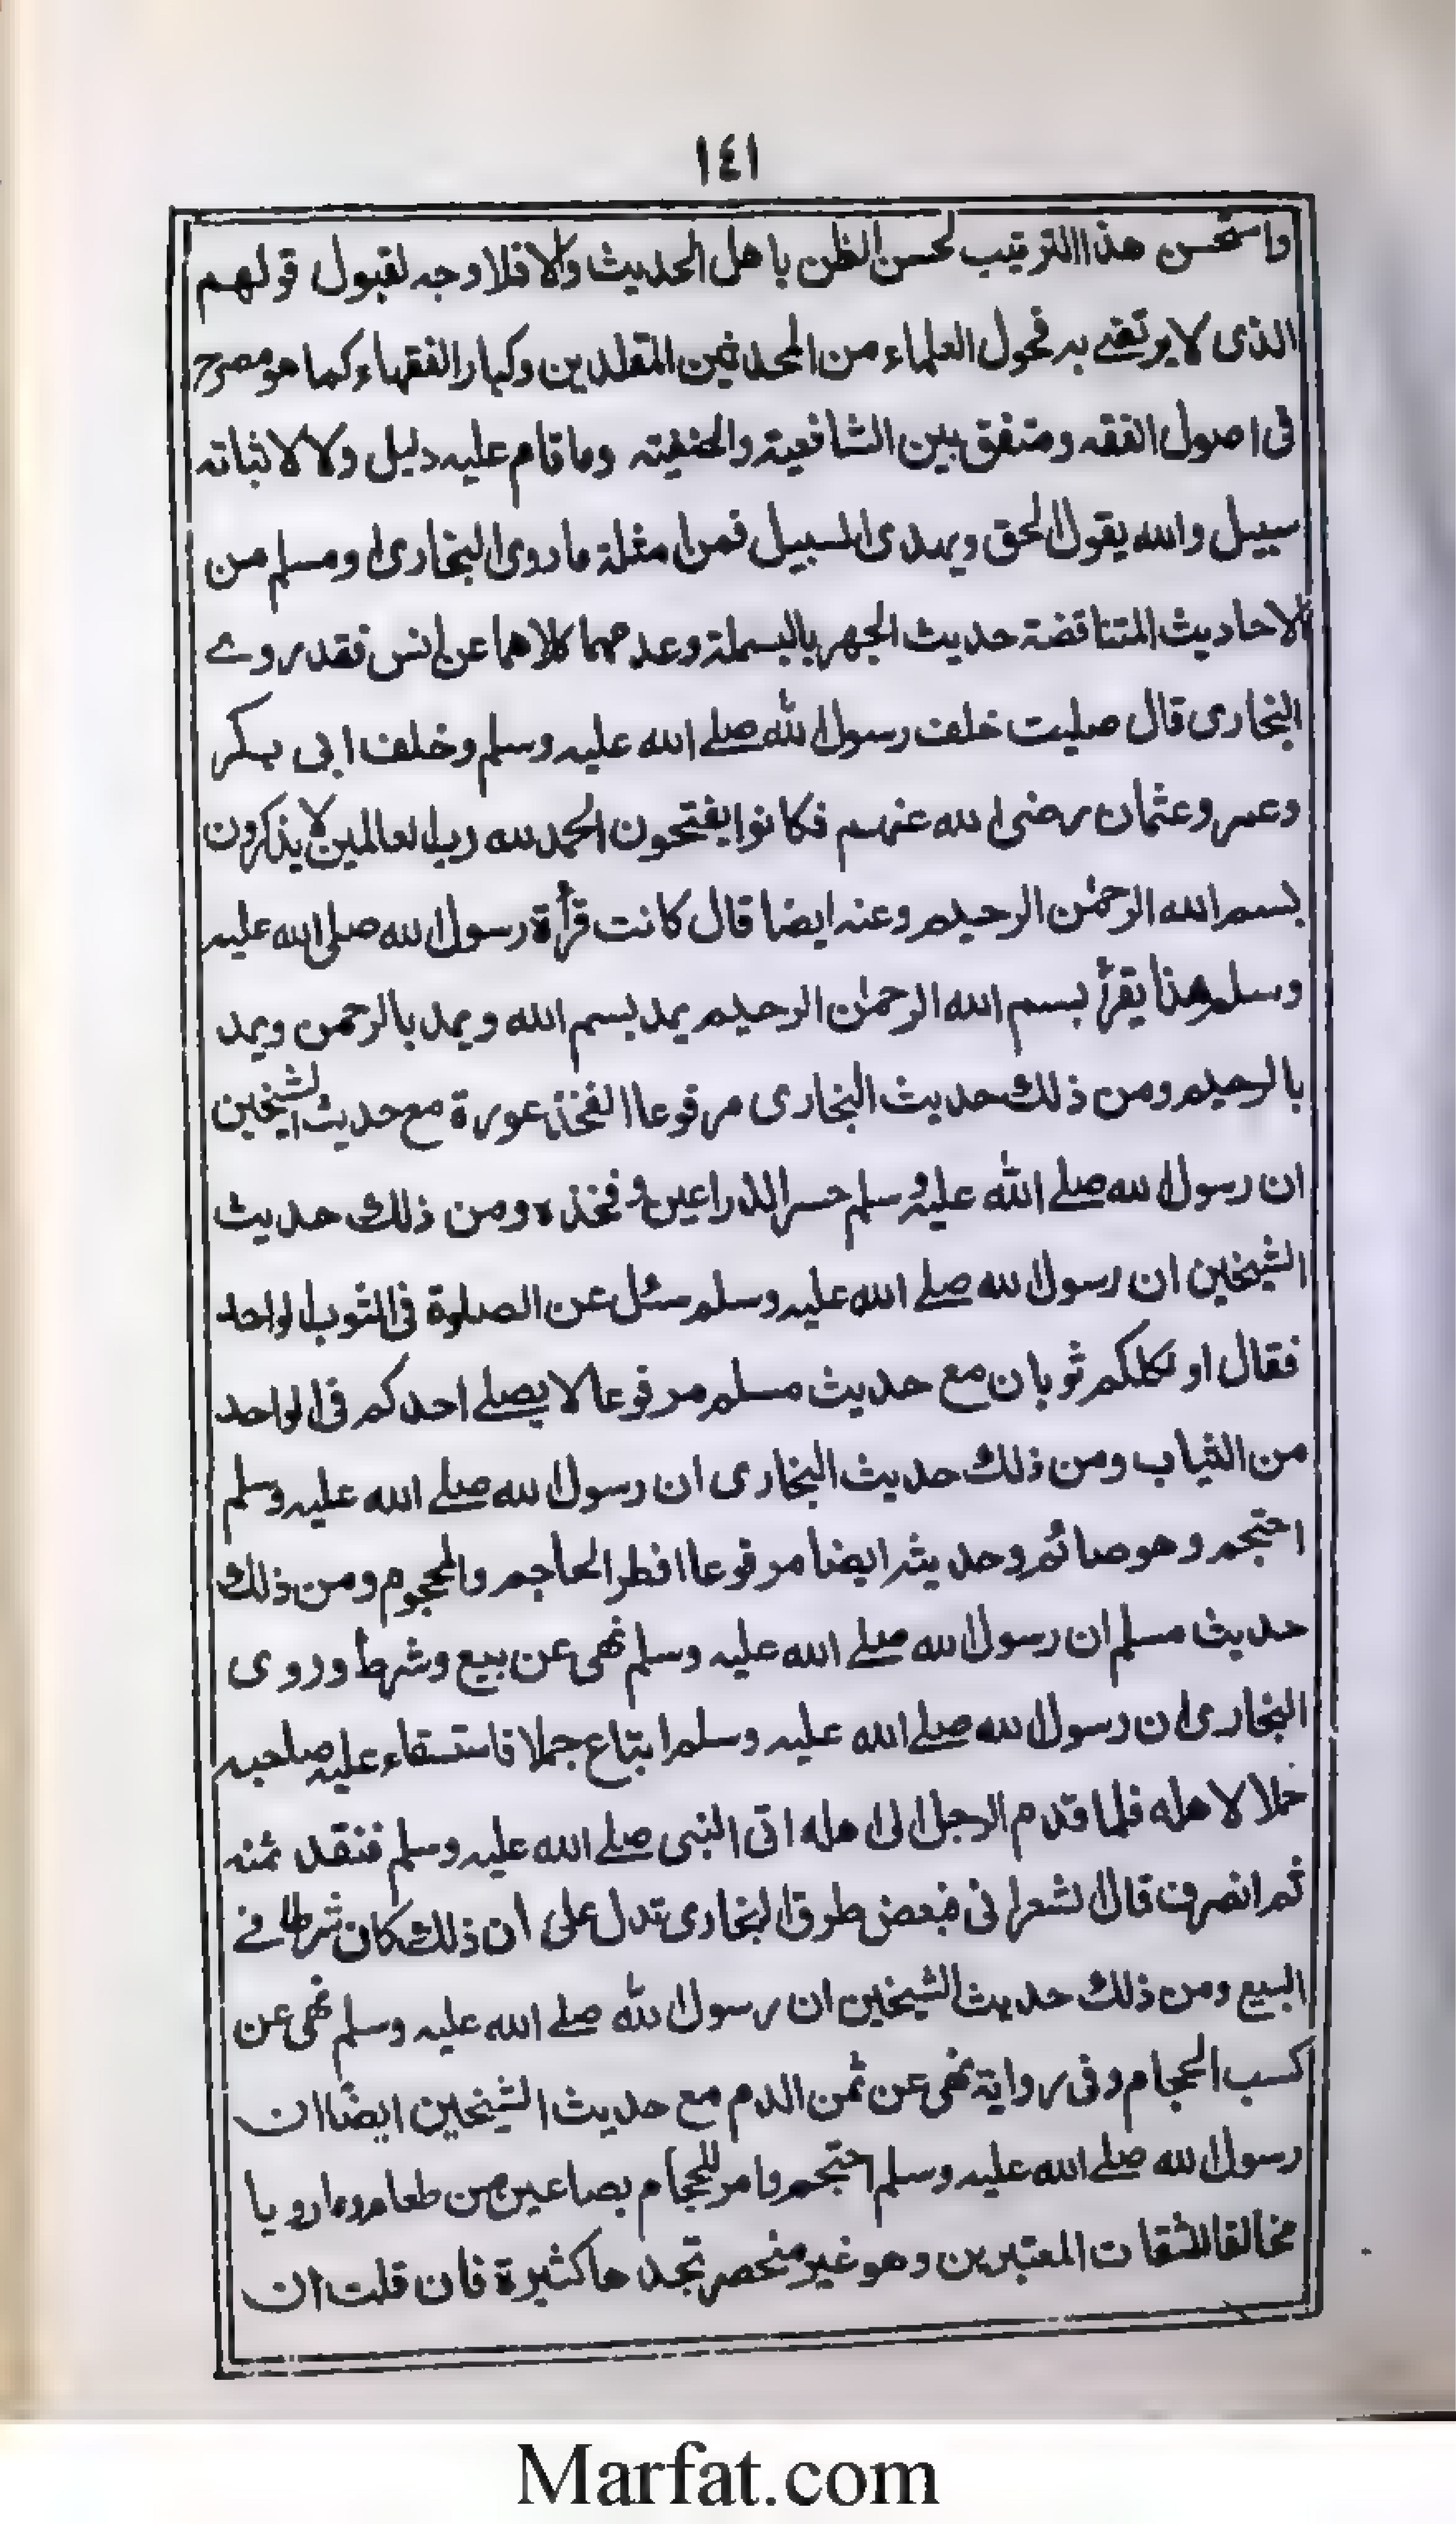 ١٤١
واستحسن هذا الترتيب لحسن الظن باهل الحديث والا فلا وجه لقبول قولهم
الذى لا يرتضے به فحول العلماء من المحدثين المقلدين وكبار الفقهاء كما هو مصرح
فى اصول الفقه ومتفق بين الشافعية والحنفيته وما قام عليه دليل ولا لاثباته
سبيل والله يقول الحق ويهدى السبيل فمن امثلة ما روى البخارى ومسلم من
الاحاديث المتناقضة حديث الجهر بالبسملة وعدمهما كلاهما عن انس فقد روے
البخارى قال صليت خلف رسول الله صلے الله عليه وسلم وخلف ابى بكر
وعمر وعثمان رضى الله عنهم فكانوا يفتحون الحمد لله رب العالمين لا يذكرون
بسم الله الرحمٰن الرحيم وعنه ايضا قال كانت قرأة رسول الله صلى الله عليه
وسلم هذا يقرأ بسم الله الرحمٰن الرحيم يمد بسم الله ويمد بالرحمن ويمد
بالرحيم ومن ذلك حديث البخارى مرفوعا الفخذ عورة مع حديث الشيخين
ان رسول الله صلے الله عليه وسلم حسر الذراعين و فخذه ومن ذلك حديث
الشيخين ان رسول الله صلے الله عليه وسلم سئل عن الصلوة فى الثوب الواحد
فقال او لكلكم ثوبان مع حديث مسلم مرفوعا لا يصلے احدكم فى الواحد
من الثياب ومن ذلك حديث البخارى ان رسول الله صلے الله عليه وسلم
احتجم وهو صائم وحديثه ايضا مرفوعا افطر الحاجم والمحجوم ومن ذلك
حديث مسلم ان رسول الله صلے الله عليه وسلم نهى عن بيع وشرط وروى
البخارى ان رسول الله صلے الله عليه وسلم ابتاع جملا فاستسقاء عليه صاحبه
حملا لاهله فلما قدم الرجل الى اهله اتى النبى صلے الله عليه وسلم فنقد ثمنه
ثم انصرف قال الشعرانى فبعض طرق البخارى تدل على ان ذلك كان شرطا فے
البيع ومن ذلك حديث الشيخين ان رسول الله صلے الله عليه وسلم نهى عن
كسب الحجام وفى رواية نهى عن ثمن الدم مع حديث الشيخين ايضًا ان
رسول الله صلے الله عليه وسلم احتجم وامر للحجام بصاعين من طعام وما رويا
مخالفا للثقات المعتبرين وهو غير منحصر تجدها كثيرة فان قلت ان
Marfat.com